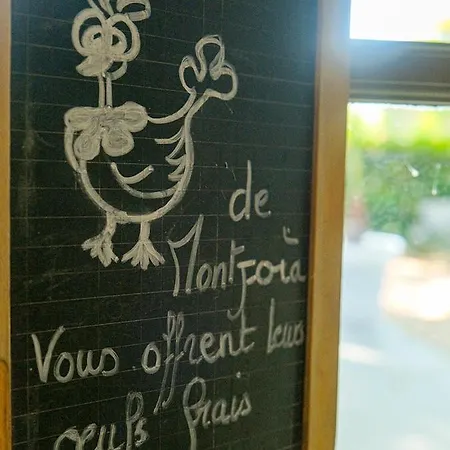 de
Montfoià
Vous offrent leurs
œufs frais